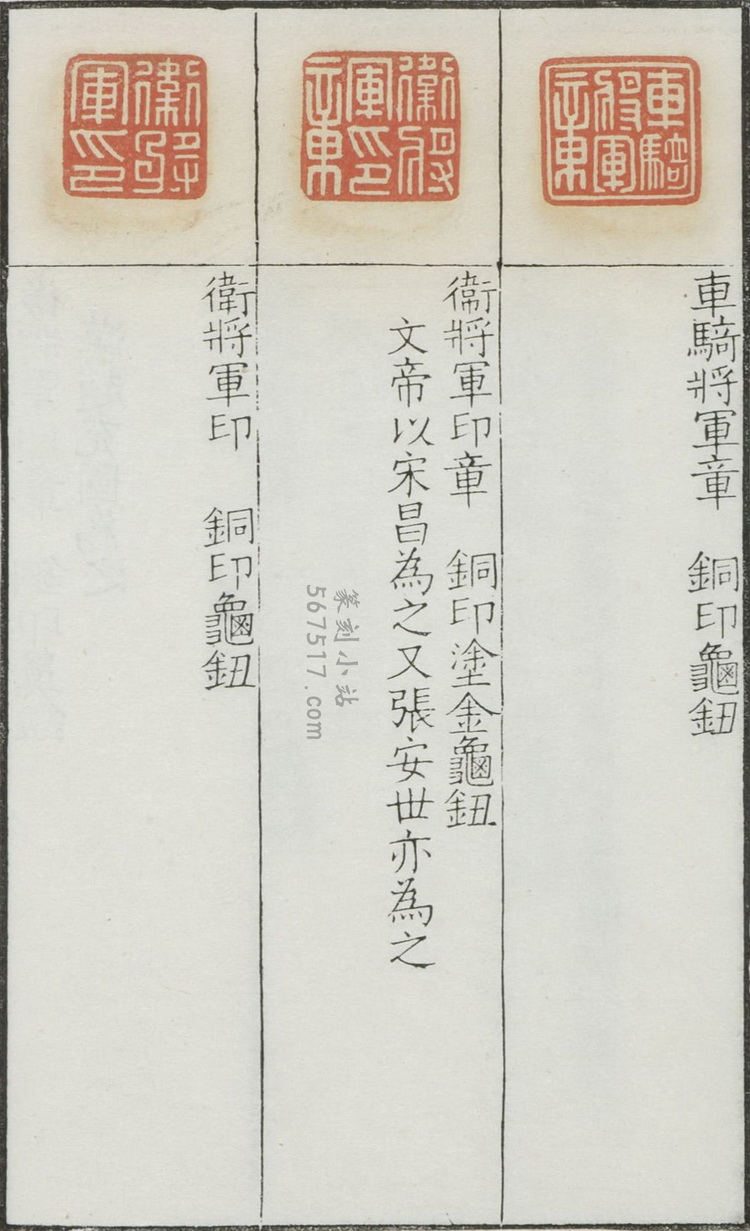 車騎將軍章
車騎將軍章 銅印龜鈕
衛將軍印章
衛將軍印章 銅印塗金龜鈕
文帝以宋昌為之又張安世亦為之
衛將軍印
衛將軍印 銅印龜鈕
篆刻小站
567517.com